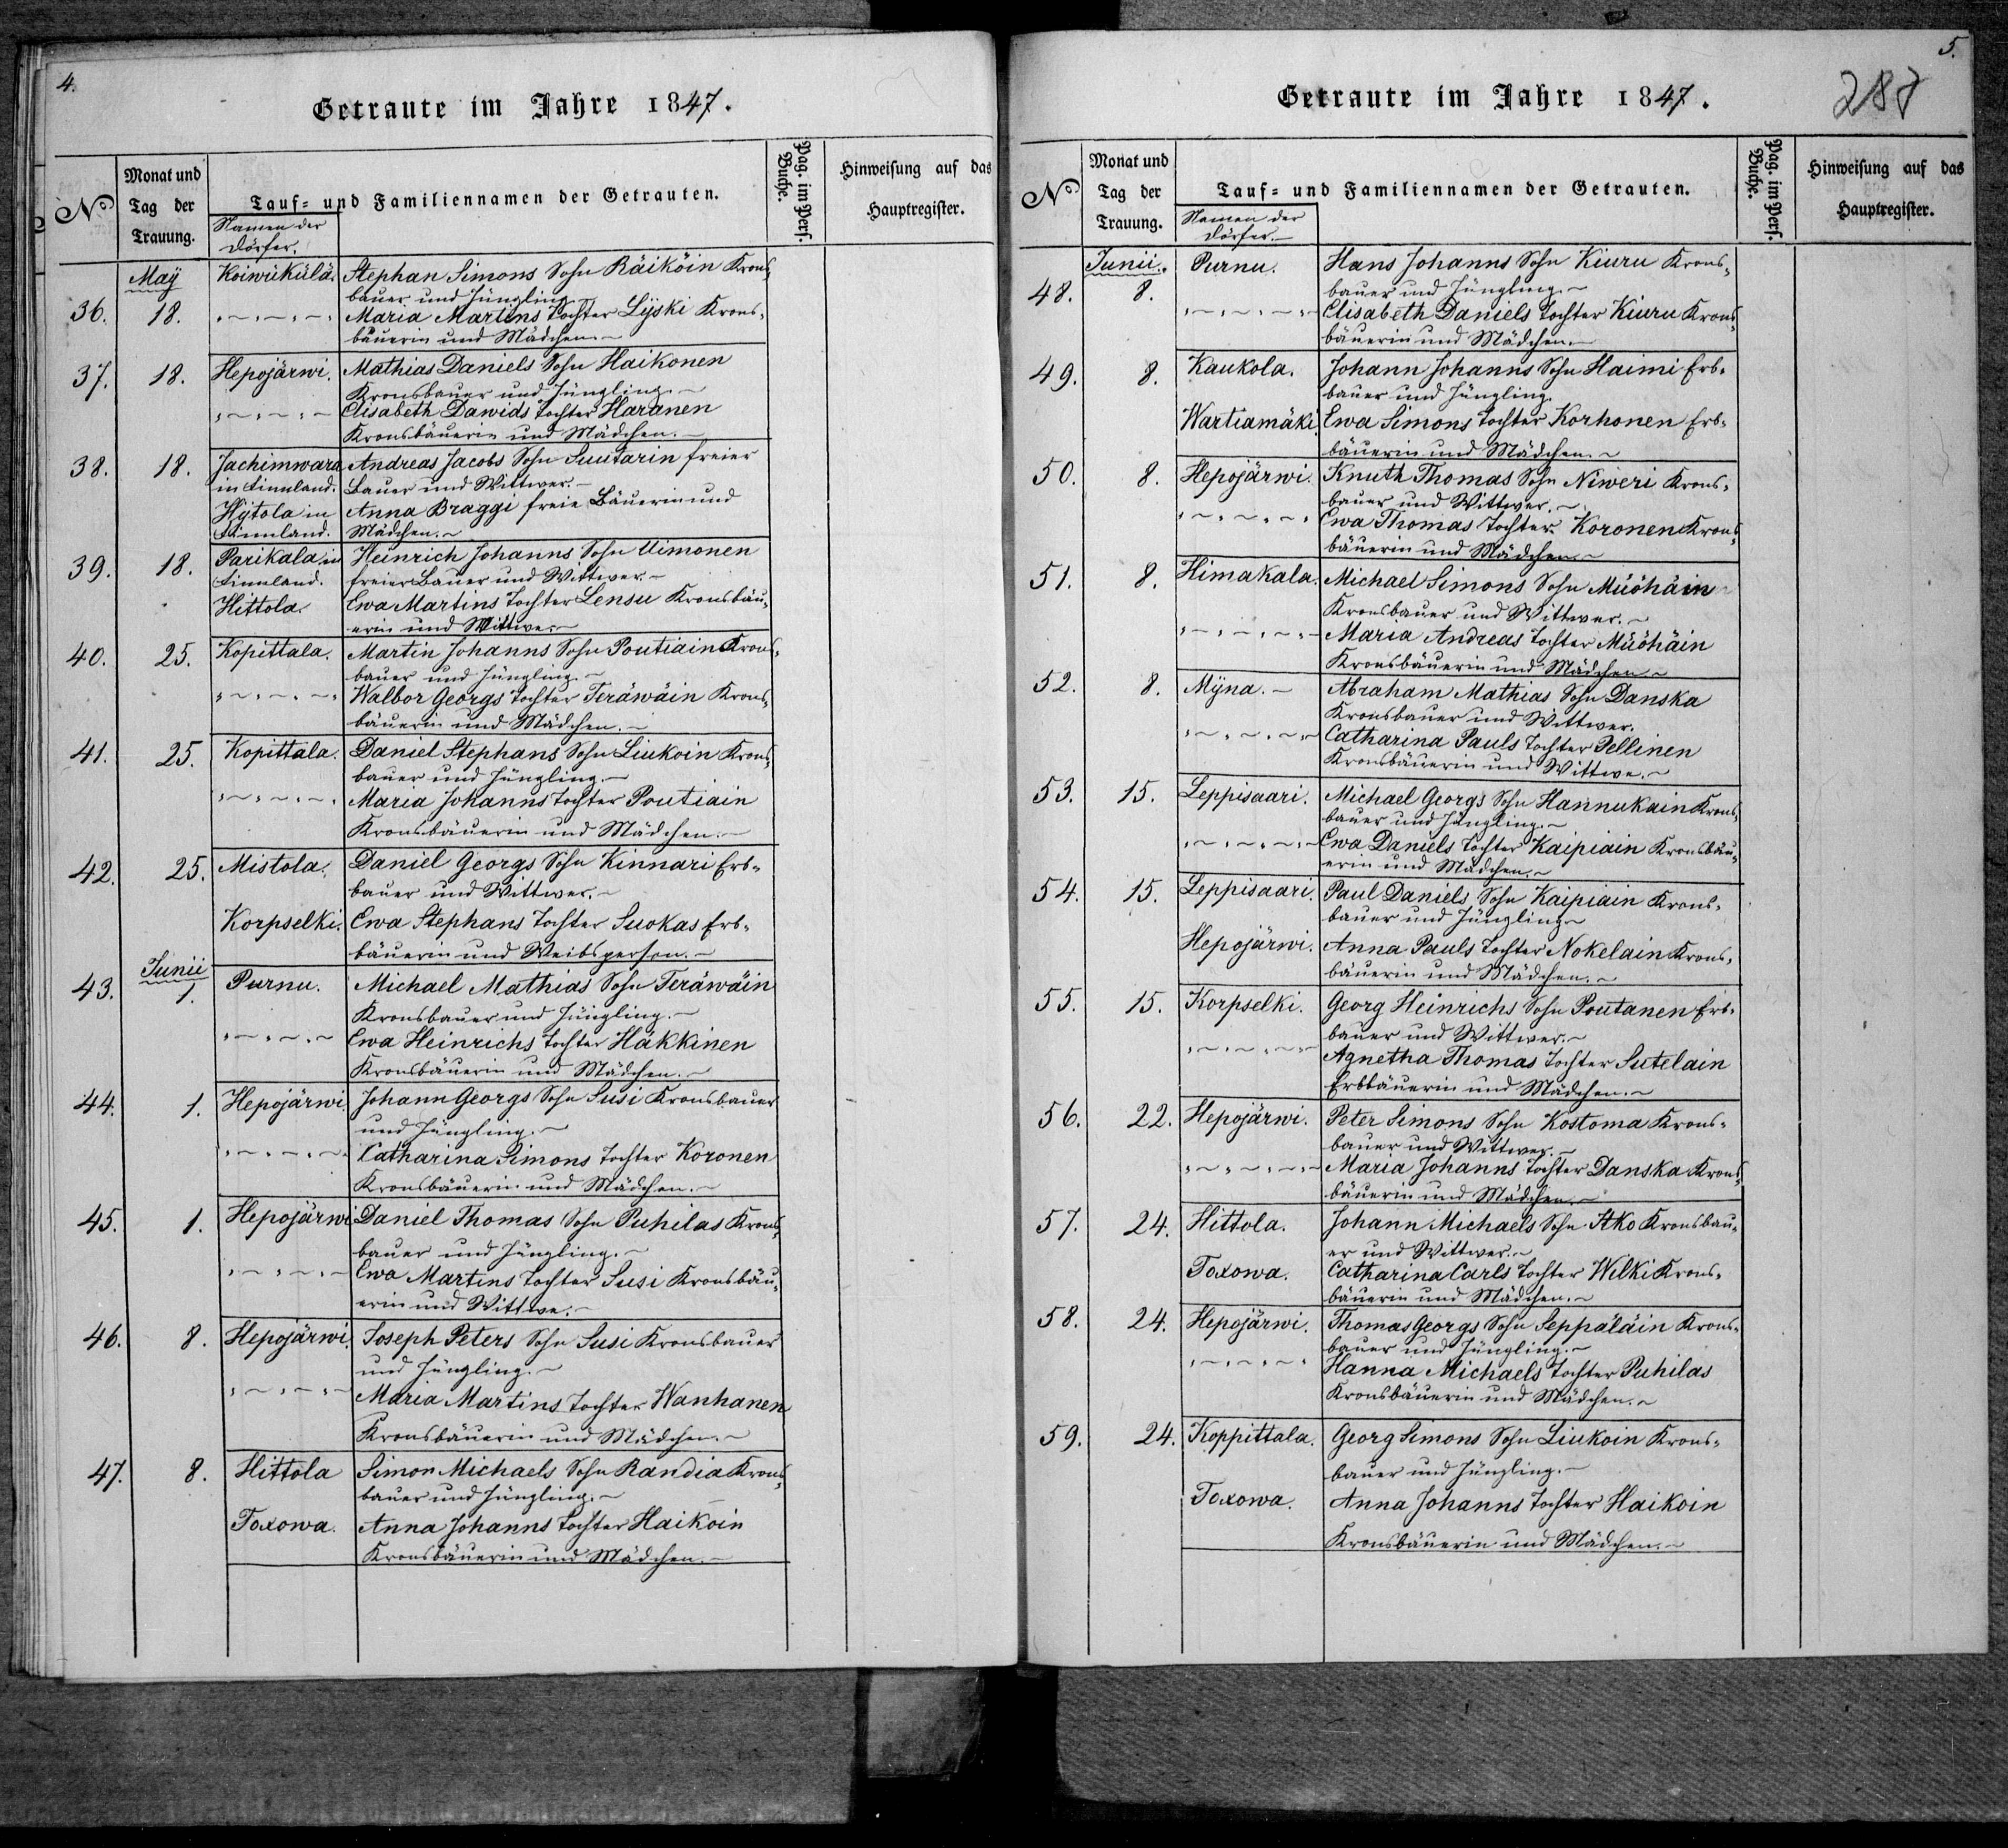 4.
Getraute im Jahre 1847.
No
Monat und Tag der Trauung.
Tauf- und Familiennamen der Getrauten.
Namen der Dörfer.
Pag. im Pers. Buche.
Hinweisung auf das Hauptregister.
May Koiwükülä. Stephan Simons Sohn Räiköin Krons-
bauer und Jüngling.
36. 18. „ ~ „ ~ „ Maria Martins Tochter Lÿski Krons-
bäuerin und Mädchen. ~
37. 18. Hepojärwi. Mathias Daniels Sohn Haikonen
Kronsbauer und Jüngling. ~
„ ~ „ ~ „ Elisabeth Dawids Tochter Haranen
Kronsbäuerin und Mädchen. ~
38. 18. Jachimwara Andreas Jacobs Sohn Suutarin freier
in Finnland. Bauer und Wittwer. ~
Hÿtola in Anna Braggi freie Bäuerin und
Finnland. Mädchen. ~
39. 18. Parikala in Heinrich Johanns Sohn Uimonen
Finnland. freier Bauer und Wittwer. ~
Hittola. Ewa Martins Tochter Lensu Kronsbäu-
erin und Wittwe. ~
40. 25. Kopittala. Martin Johanns Sohn Poutiain Krons-
bauer und Jüngling. ~
„ ~ „ ~ „ Walbor Georgs Tochter Teräwäin Krons-
bäuerin und Mädchen. ~
41. 25. Kopittala. Daniel Stephans Sohn Liukoin Krons-
bauer und Jüngling. ~
„ ~ „ ~ „ Maria Johanns Tochter Poutiain
Kronsbäuerin und Mädchen. ~
42. 25. Mistola. Daniel Georgs Sohn Kinnari Erb-
bauer und Wittwer. ~
Korpselki. Ewa Stephans Tochter Suokas Erb-
bäuerin und Weibsperson. ~
Junii
43. 1. Purnu. Michael Mathias Sohn Teräwäin
Kronsbauer und Jüngling. ~
„ ~ „ ~ Ewa Heinrichs Tochter Häkkinen
Kronsbäuerin und Mädchen. ~
44. 1. Hepojärwi. Johann Georgs Sohn Susi Kronsbauer
und Jüngling. ~
„ ~ „ ~ „ Catharina Simons Tochter Koronen
Kronsbäuerin und Mädchen. ~
45. 1. Hepojärwi Daniel Thomas Sohn Puhilas Krons-
bauer und Jüngling. ~
„ ~ „ ~ „ Ewa Martins Tochter Susi Kronsbäu-
erin und Wittwe. ~
46. 8. Hepojärwi. Joseph Peters Sohn Susi Kronsbauer
und Jüngling. ~
„ ~ „ ~ „ Maria Martins Tochter Wanhanen
Kronsbäuerin und Mädchen. ~
47. 8. Hittola Simon Michaels Sohn Randia Krons-
bauer und Jüngling. ~
Toxowa. Anna Johanns Tochter Haikoin
Kronsbäuerin und Mädchen. ~
5.
287
Getraute im Jahre 1847.
No
Monat und Tag der Trauung.
Tauf- und Familiennamen der Getrauten.
Namen der Dörfer.
Pag. im Pers. Buche.
Hinweisung auf das Hauptregister.
Junii. Purnu. Hans Johanns Sohn Kiuru Krons-
48. 8. bauer und Jüngling. ~
„ ~ „ ~ „ Elisabeth Daniels Tochter Kiuru Krons-
bäuerin und Mädchen. ~
49. 8. Kaukola. Johann Johanns Sohn Haimi Erb-
bauer und Jüngling.
Wartiamäki. Ewa Simons Tochter Korhonen Erb-
bäuerin und Mädchen. ~
50. 8. Hepojärwi. Knuth Thomas Sohn Niweri Krons-
bauer und Wittwer. ~
„ ~ „ ~ „ Ewa Thomas Tochter Koronen Krons-
bäuerin und Mädchen. ~
51. 8. Himakala. Michael Simons Sohn Müöhäin
Kronsbauer und Wittwer. ~
„ ~ „ ~ „ Maria Andreas Tochter Müöhäin
Kronsbäuerin und Mädchen. ~
52. 8. Mÿna. ~ Abraham Mathias Sohn Danska
Kronsbauer und Wittwer.
„ ~ „ ~ „ Catharina Pauls Tochter Pellinen
Kronsbäuerin und Wittwe. ~
53. 15. Leppisaari. Michael Georgs Sohn Hannukain Krons-
bauer und Jüngling. ~
„ ~ „ ~ „ Ewa Daniels Tochter Kaipiain Kronsbäu-
erin und Mädchen. ~
54. 15. Leppisaari. Paul Daniels Sohn Kaipiain Krons-
bauer und Jüngling ~
Hepojärwi. Anna Pauls Tochter Nokelain Krons-
bäuerin und Mädchen. ~
55. 15. Korpselki. Georg Heinrichs Sohn Poutanen Erb-
bauer und Wittwer. ~
„ ~ „ ~ „ Agnetha Thomas Tochter Sutelain
Erbbäuerin und Mädchen. ~
56. 22. Hepojärwi. Peter Simons Sohn Kostoma Krons-
bauer und Wittwer. ~
„ ~ „ ~ „ Maria Johanns Tochter Danska Krons-
bäuerin und Mädchen. ~
57. 24. Hittola. Johann Michaels Sohn Itko Kronsbau-
er und Wittwer. ~
Toxowa. Catharina Carls Tochter Wilki Krons-
bäuerin und Mädchen. ~
58. 24. Hepojärwi. Thomas Georgs Sohn Seppäläin Krons-
bauer und Jüngling. ~
„ ~ „ ~ „ Hanna Michaels Tochter Puhilas
Kronsbäuerin und Mädchen. ~
59. 24. Koppittala. Georg Simons Sohn Liukoin Krons-
bauer und Jüngling. ~
Toxowa. Anna Johanns Tochter Haikoin
Kronsbäuerin und Mädchen. ~